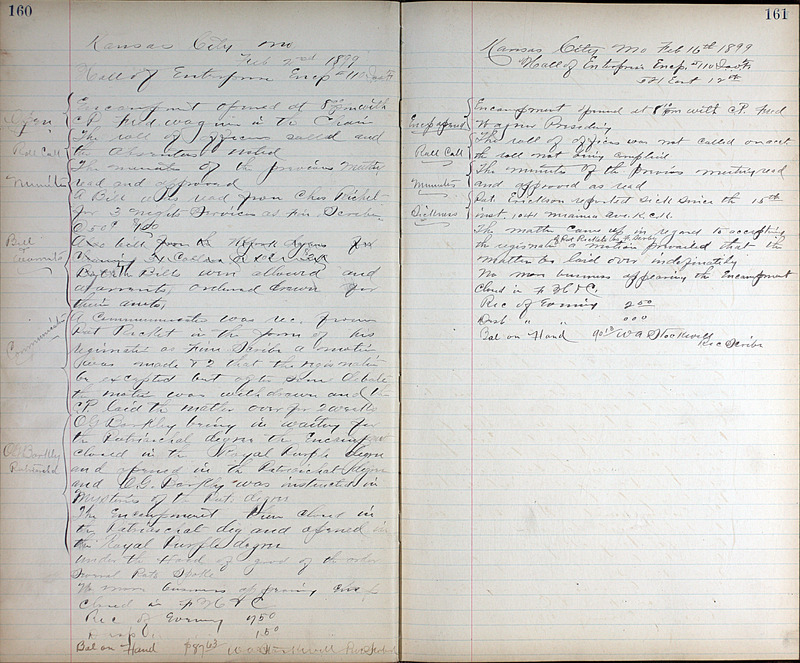 160
Kansas City Mo
Feb 2nd 1899
Hall of Enterprise Encp #11 IOOF
Open
Encampment opened at 8 pm with
CP Fred Wagner in the Chair
Roll Call
The roll of officers called and
the absentees noted
Minutes
The minutes of the previous meeting
read and approved
A Bill was read from Chas
for 3 nights Services as Fin Scribe
Bill
Also bill from
Both Bills were allowed and
warrants ordered drawn for
their amts
Communication
A Communication was rec from
Pat Picket in the form of his
resignation as Fin Scribe a motion
was made & 2 that the resignation
be excepted but after some debate
the motion was withdrawn and the
CP laid the matter over for 2 weeks
OG Barkley
OG Barkley being in waiting for
the Patriarchal degree the Encampment
closed in the Royal Purple degree
and opened in the Patriarchal degree
and OG Barkley was instructed in
Mysteries of the Pat. degree
The Encampment then closed in
the Patriarchal deg and opened in
the Royal Purple degree
Under the Head of good of the order
Several Pats Spoke
No more business appearing
closed in F H & C
Rec of Evening 7 50
1 50
Bal on Hand $87 63 WA Stockwell Rec Scribe
161
Kansas City Mo Feb 16th 1899
Hall of Enterprise Encp. #11 IOOF
East 12th
Encp opened
Encampment opened at 8 pm with C.P. Fred
Wagner Presiding
Roll Call
The roll of officers was not called on acct
the roll not being complete
Minutes
The minutes of the previous meeting read
and approved as read
Sickness
Pat. Erickson reported Sick Since the 15th
inst. 1041 Miami Ave K.C.K.
The matter came up in regard to accepting
the resignation motion prevailed that the
matter be laid over indefinately
No more business appearing the Encampment
Closed in F H & C.
Rec of Evening 2 50
" " 0 00
Bal on Hand 90 13 WA Stockwell
Rec Scribe